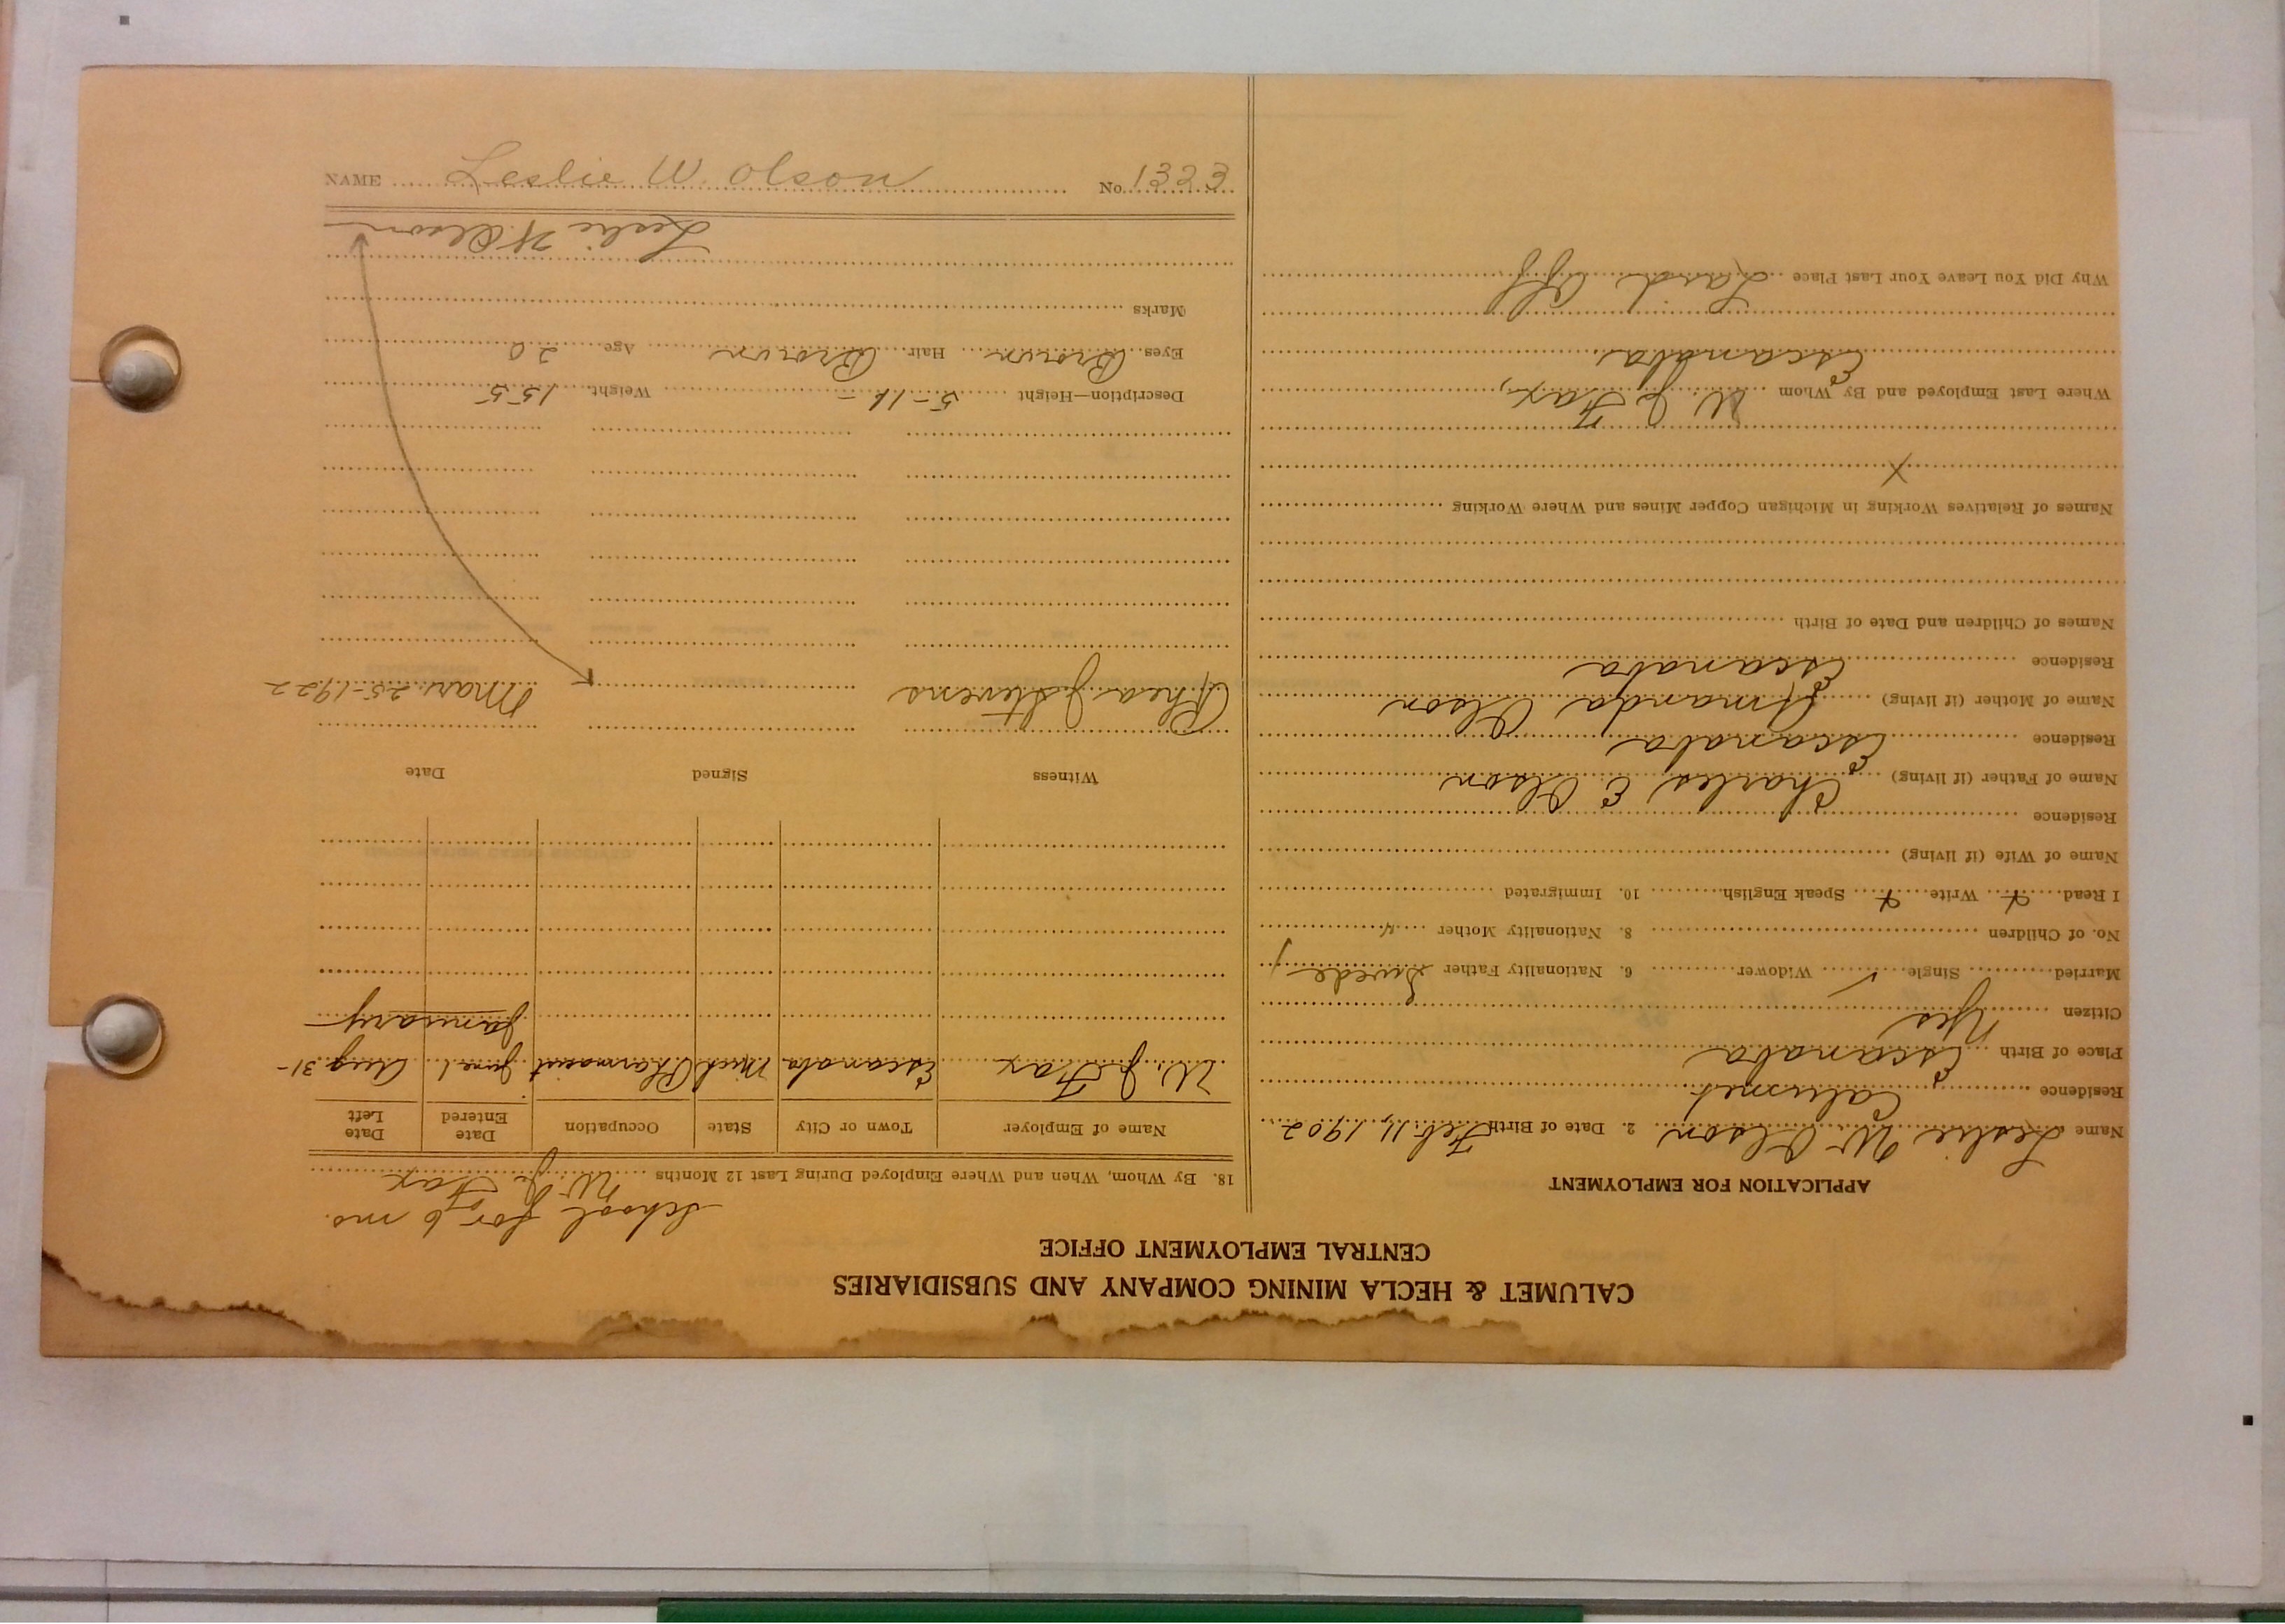 CALUMET & HECLA MINING COMPANY AND SUBSIDIARIES
CENTRAL EMPLOYMENT OFFICE
APPLICATION FOR EMPLOYMENT
Name Leslie W Olson 2. Date of Birth Feb 11, 1902
Residence Calumet
Place of Birth Escanaba
Citizen Yes
Married Single ✓ Widower 6. Nationality Father Swede
No. of Children 8. Nationality Mother "
I Read Write Speak English 10. Immigrated
Name of Wife (if living)
Residence
Name of Father (if living) Charles E Olson
Residence Escanaba
Name of Mother (if living) Amanda Olson
Residence Escanaba
Names of Children and Date of Birth
Names of Relatives Working in Michigan Copper Mines and Where Working
X
Where Last Employed and By Whom W J Fax,
Escanaba
Why Did You Leave Your Last Place Laid Off
School for 6 mo.
18. By Whom, When and Where Employed During Last 12 Months W. J. Fax
Name of Employer Town or City State Occupation Date Entered Date Left
W. J. Fax Escanaba Mich Pharmacist June 1 Aug 31-
January
Witness Signed Date
Rhea J Stevens Mar. 25-1922
Description—Height 5-11- Weight 155
Eyes Brown Hair Brown Age 20
Marks
Leslie W Olson
NAME Leslie W. Olson No. 1323